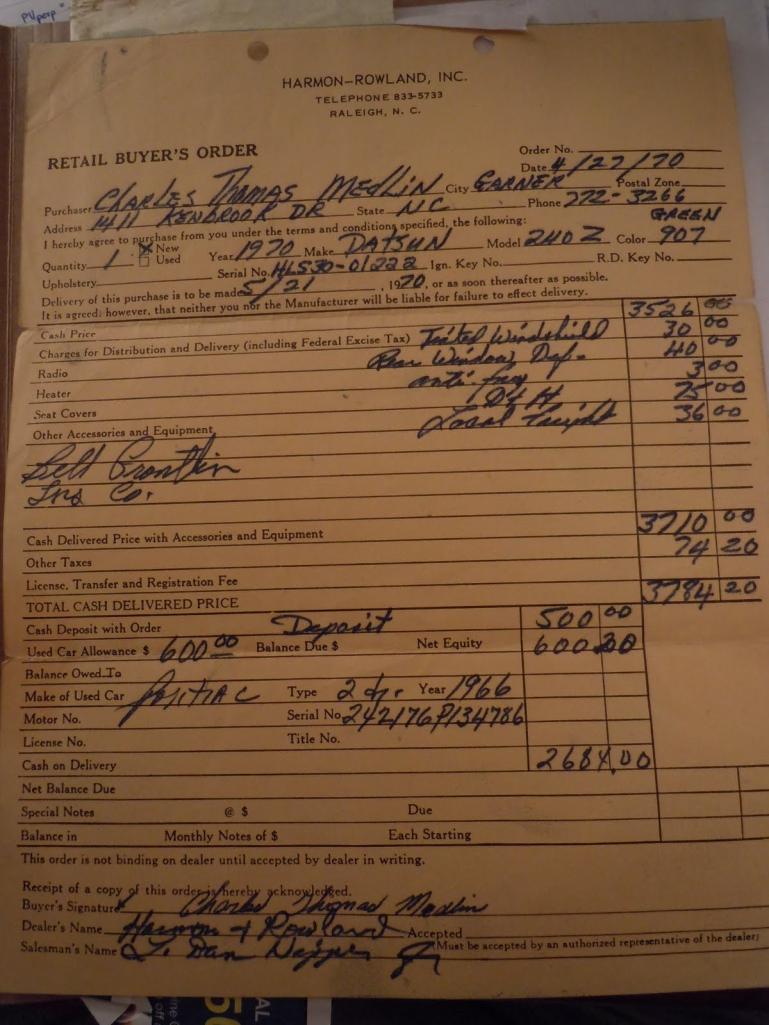 HARMON-ROWLAND, INC.
TELEPHONE 833-5733
RALEIGH, N. C.
RETAIL BUYER'S ORDER
Order No.
Date 4/27/70
Purchaser CHARLES THOMAS MEDLIN City GARNER Postal Zone
Address 1411 KENBROOK DR State NC Phone 772-3266
I hereby agree to purchase from you under the terms and conditions specified, the following: GREEN
Quantity 1 X New Used Year 1970 Make DATSUN Model 240Z Color 907
Upholstery Serial No. HLS30-01222 Ign. Key No. R.D. Key No.
Delivery of this purchase is to be made 5/21, 1970, or as soon thereafter as possible.
It is agreed; however, that neither you nor the Manufacturer will be liable for failure to effect delivery.
Cash Price 3526 00
Charges for Distribution and Delivery (including Federal Excise Tax) Tinted Windshield 30 00
Radio Rear Window Def. 40 00
Heater anti-frez 3 00
Seat Covers D & H 75 00
Other Accessories and Equipment Local Freight 36 00
Ins Co.
Cash Delivered Price with Accessories and Equipment 3710 00
Other Taxes 74 20
License, Transfer and Registration Fee
TOTAL CASH DELIVERED PRICE 3784 20
Cash Deposit with Order Deposit 500 00
Used Car Allowance $ 600 00 Balance Due $ Net Equity 600
Balance Owed To
Make of Used Car PONTIAC Type 2 dr. Year 1966
Motor No. Serial No. 242176P134786
License No. Title No.
Cash on Delivery 2684.00
Net Balance Due
Special Notes @ $ Due
Balance in Monthly Notes of $ Each Starting
This order is not binding on dealer until accepted by dealer in writing.
Receipt of a copy of this order is hereby acknowledged.
Buyer's Signature Charles Thomas Medlin
Dealer's Name Harmon & Rowland Accepted
Salesman's Name Dan Jr (Must be accepted by an authorized representative of the dealer)